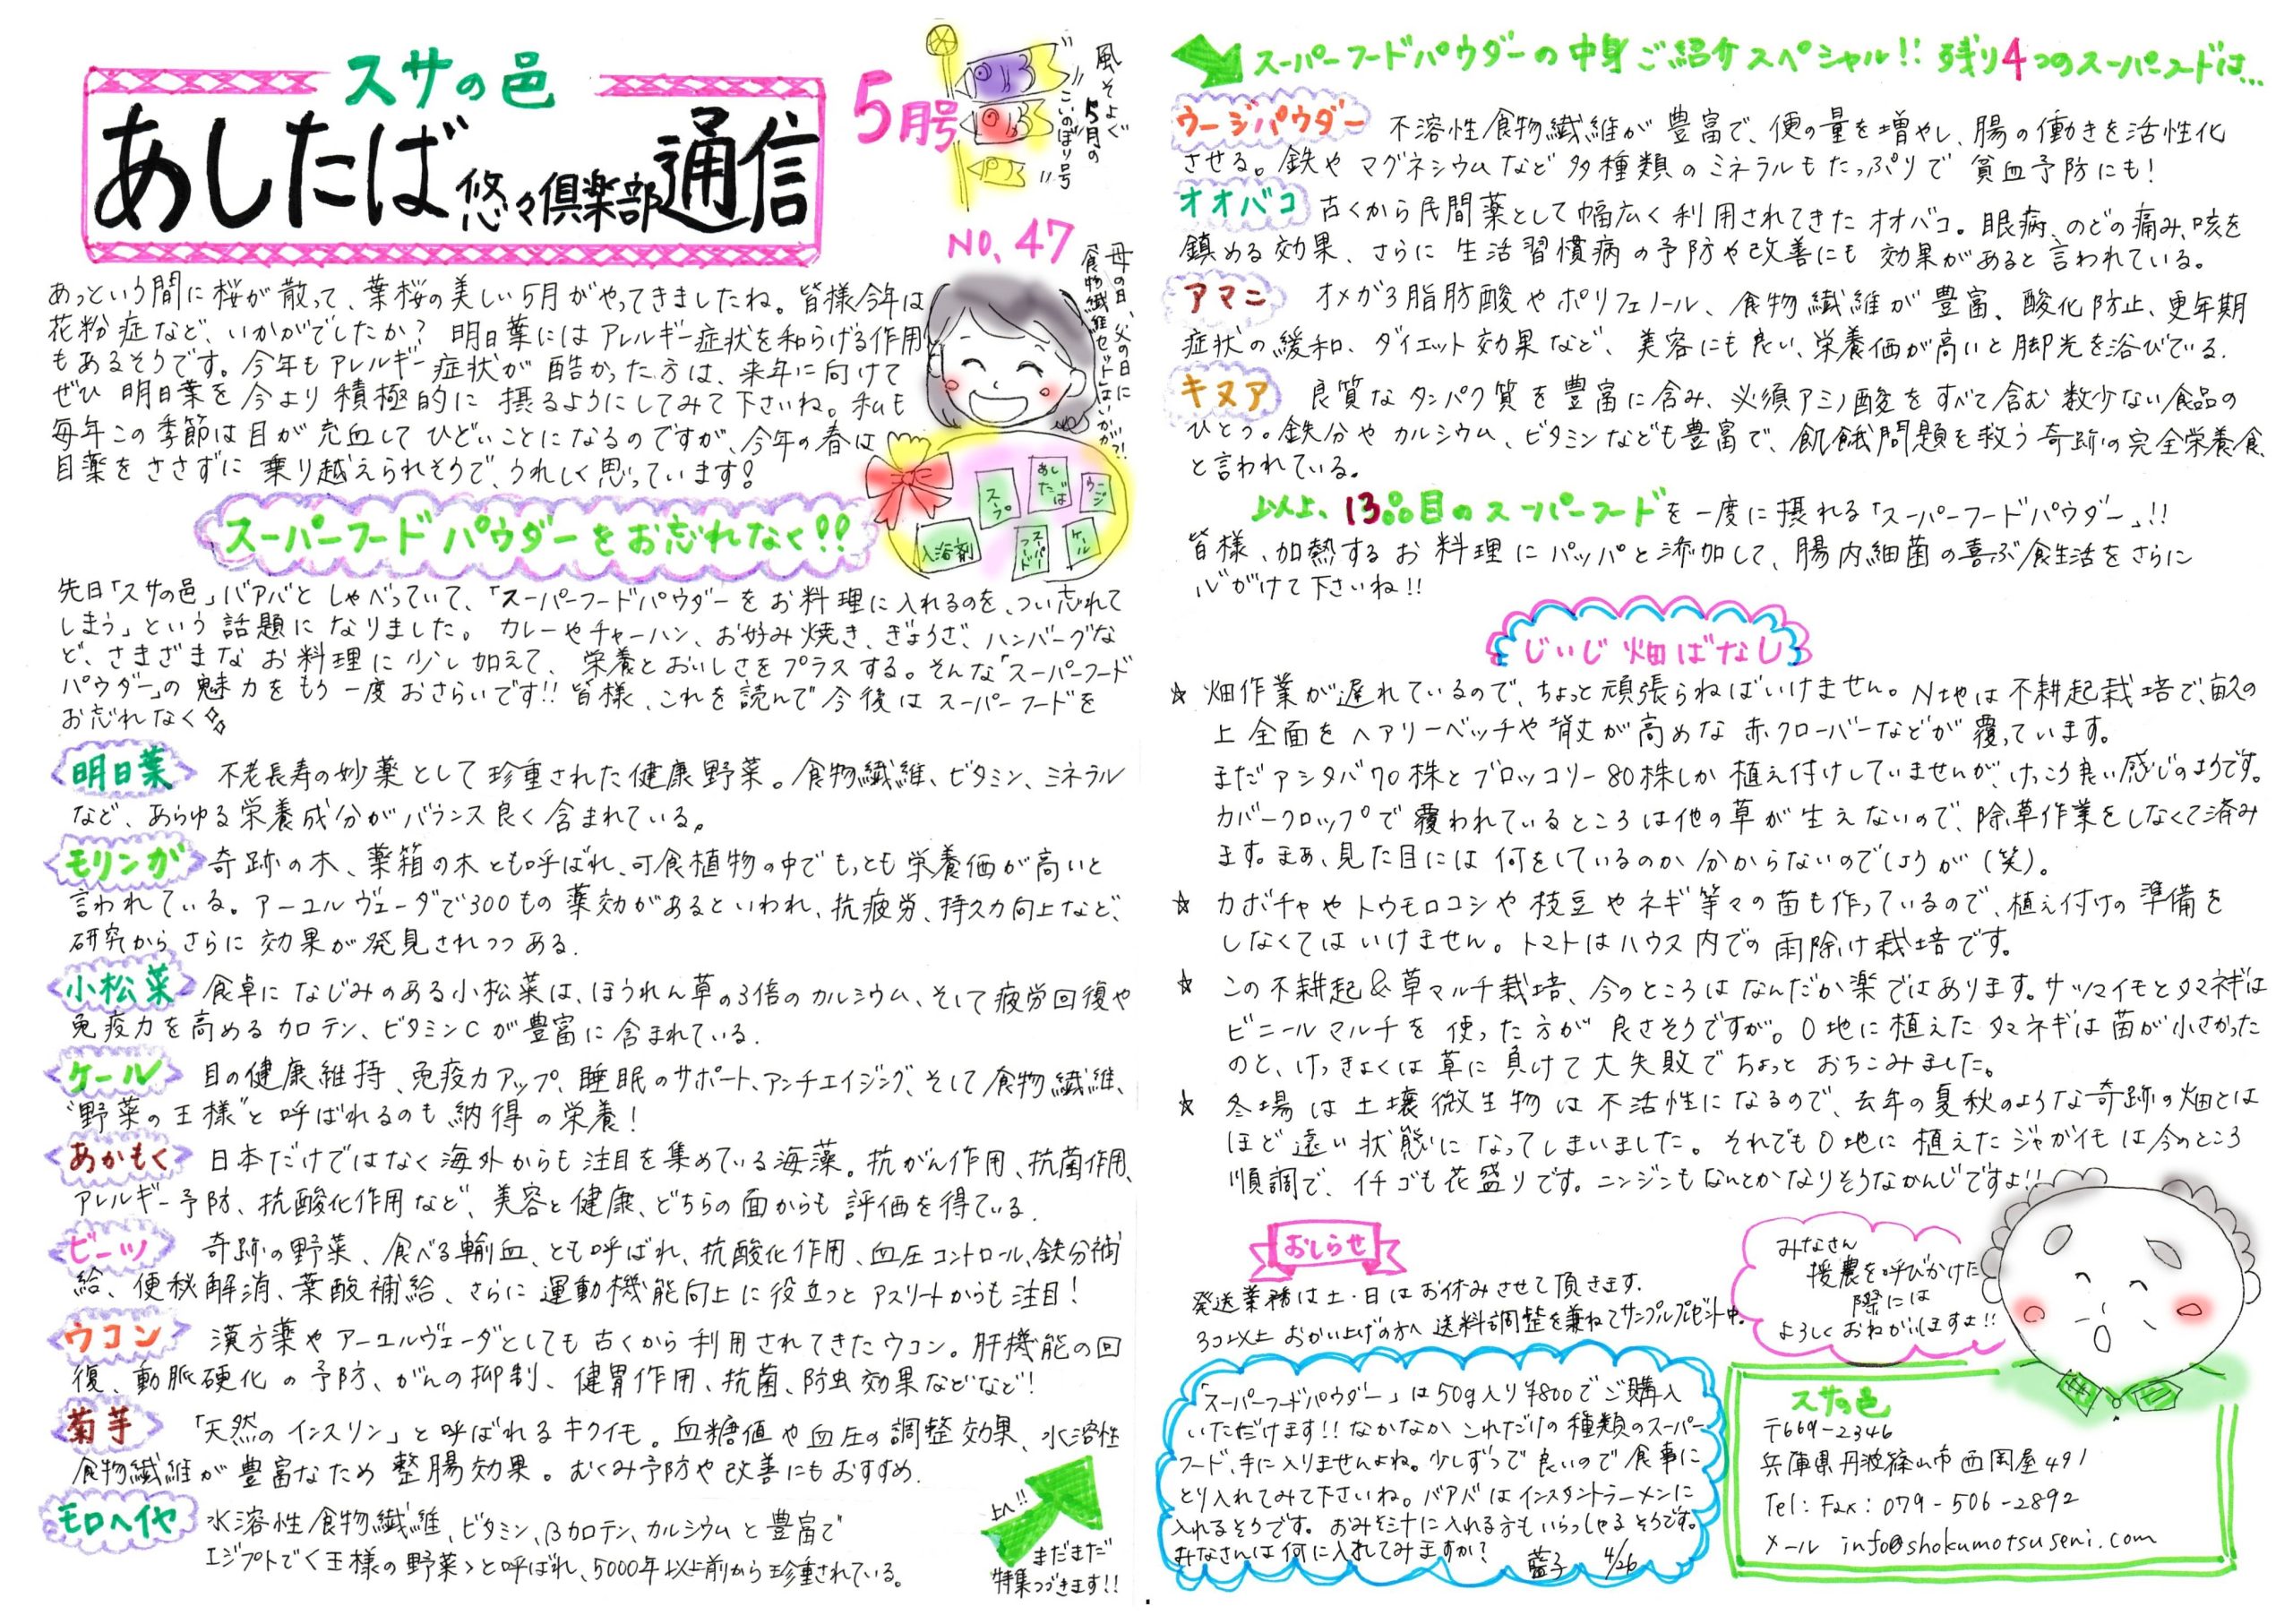 スサの邑
あしたば悠々倶楽部通信
5月号
風そよぐ
5月の
こいのぼり号
NO.47
母の日、父の日に
「食物繊維セット」はいかが?!
あっという間に桜が散って、葉桜の美しい5月がやってきましたね。皆様今年は
花粉症など、いかがでしたか? 明日葉にはアレルギー症状を和らげる作用
もあるそうです。今年もアレルギー症状が酷かった方は、来年に向けて
ぜひ明日葉を今より積極的に摂るようにしてみて下さいね。私も
毎年この季節は目が充血してひどいことになるのですが、今年の春は
目薬をささずに乗り越えられそうで、うれしく思っています!
スープ
あしたば
ウージ
入浴剤
スーパーフード
ケール
スーパーフードパウダーをお忘れなく!!
先日「スサの邑」バアバとしゃべっていて、「スーパーフードパウダーをお料理に入れるのを、つい忘れて
しまう」という話題になりました。カレーやチャーハン、お好み焼き、ぎょうざ、ハンバーグな
ど、さまざまなお料理に少し加えて、栄養とおいしさをプラスする。そんな「スーパーフード
パウダー」の魅力をもう一度おさらいです!! 皆様、これを読んで今後はスーパーフードを
お忘れなく
明日葉 不老長寿の妙薬として珍重された健康野菜。食物繊維、ビタミン、ミネラル
など、あらゆる栄養成分がバランス良く含まれている。
モリンガ 奇跡の木、薬箱の木とも呼ばれ、可食植物の中でもっとも栄養価が高いと
言われている。アーユルヴェーダで300もの薬効があるといわれ、抗疲労、持久力向上など、
研究からさらに効果が発見されつつある.
小松菜 食卓になじみのある小松菜は、ほうれん草の3倍のカルシウム、そして疲労回復や
免疫力を高めるカロテン、ビタミンCが豊富に含まれている.
ケール 目の健康維持、免疫力アップ、睡眠のサポート、アンチエイジング、そして食物繊維、
"野菜の王様"と呼ばれるのも納得の栄養!
あかもく 日本だけではなく海外からも注目を集めている海藻。抗がん作用、抗菌作用、
アレルギー予防、抗酸化作用など、美容と健康、どちらの面からも評価を得ている.
ビーツ 奇跡の野菜、食べる輸血、とも呼ばれ、抗酸化作用、血圧コントロール、鉄分補
給、便秘解消、葉酸補給、さらに運動機能向上に役立つとアスリートからも注目!
ウコン 漢方薬やアーユルヴェーダとしても古くから利用されてきたウコン。肝機能の回
復、動脈硬化の予防、がんの抑制、健胃作用、抗菌、防虫効果などなど!
菊芋 「天然のインスリン」と呼ばれるキクイモ。血糖値や血圧の調整効果、水溶性
食物繊維が豊富なため整腸効果。むくみ予防や改善にもおすすめ.
モロヘイヤ 水溶性食物繊維、ビタミン、βカロテン、カルシウムと豊富で
エジプトで<王様の野菜>と呼ばれ、5000年以上前から珍重されている。
上へ!!
まだまだ
特集つづきます!!
スーパーフードパウダーの中身ご紹介スペシャル!! 残り4つのスーパーフードは…
ウージパウダー 不溶性食物繊維が豊富で、便の量を増やし、腸の働きを活性化
させる。鉄やマグネシウムなど多種類のミネラルもたっぷりで貧血予防にも!
オオバコ 古くから民間薬として幅広く利用されてきたオオバコ。眼病、のどの痛み、咳を
鎮める効果、さらに生活習慣病の予防や改善にも効果があると言われている。
アマニ オメガ3脂肪酸やポリフェノール、食物繊維が豊富、酸化防止、更年期
症状の緩和、ダイエット効果など、美容にも良い、栄養価が高いと脚光を浴びている.
キヌア 良質なタンパク質を豊富に含み、必須アミノ酸をすべて含む数少ない食品の
ひとつ。鉄分やカルシウム、ビタミンなども豊富で、飢餓問題を救う奇跡の完全栄養食、
と言われている。
以上、13品目のスーパーフードを一度に摂れる「スーパーフードパウダー」!!
皆様、加熱するお料理にパッパと添加して、腸内細菌の喜ぶ食生活をさらに
心がけて下さいね!!
じいじ畑ばなし
☆ 畑作業が遅れているので、ちょっと頑張らねばいけません。N地は不耕起栽培で、畝の
上全面をヘアリーベッチや背丈が高めな赤クローバーなどが覆っています。
まだアシタバ70株とブロッコリー80株しか植え付けしていませんが、けっこう良い感じのようです。
カバークロップで覆われているところは他の草が生えないので、除草作業をしなくて済み
ます。まあ、見た目には何をしているのか分からないのでしょうが(笑)。
☆ カボチャやトウモロコシや枝豆やネギ等々の苗も作っているので、植え付けの準備を
しなくてはいけません。トマトはハウス内での雨除け栽培です。
☆ この不耕起&草マルチ栽培、今のところはなんだか楽ではあります。サツマイモとタマネギは
ビニールマルチを使った方が良さそうですが。O地に植えたタマネギは苗が小さかった
のと、けっきょくは草に負けて大失敗でちょっとおちこみました。
☆ 冬場は土壌微生物は不活性になるので、去年の夏秋のような奇跡の畑とは
ほど遠い状態になってしまいました。それでもO地に植えたジャガイモは今のところ
順調で、イチゴも花盛りです。ニンジンもなんとかなりそうなかんじですよ!!
おしらせ
発送業務は土・日はお休みさせて頂きます.
3コ以上お買い上げの方へ送料調整を兼ねてサンプルプレゼント中.
みなさん
援農を呼びかけた
際には
よろしくおねがいしますよ!!
「スーパーフードパウダー」は50g入り¥800でご購入
いただけます!! なかなかこれだけの種類のスーパー
フード、手に入りませんよね。少しずつで良いので食事に
とり入れてみて下さいね。バアバはインスタントラーメンに
入れるそうです。おみそ汁に入れる方もいらっしゃるそうです。
みなさんは何に入れてみますか? 藍子 4/26
スサの邑
〒669-2346
兵庫県丹波篠山市西岡屋491
Tel:Fax:079-506-2892
メール info@shokumotsuseni.com